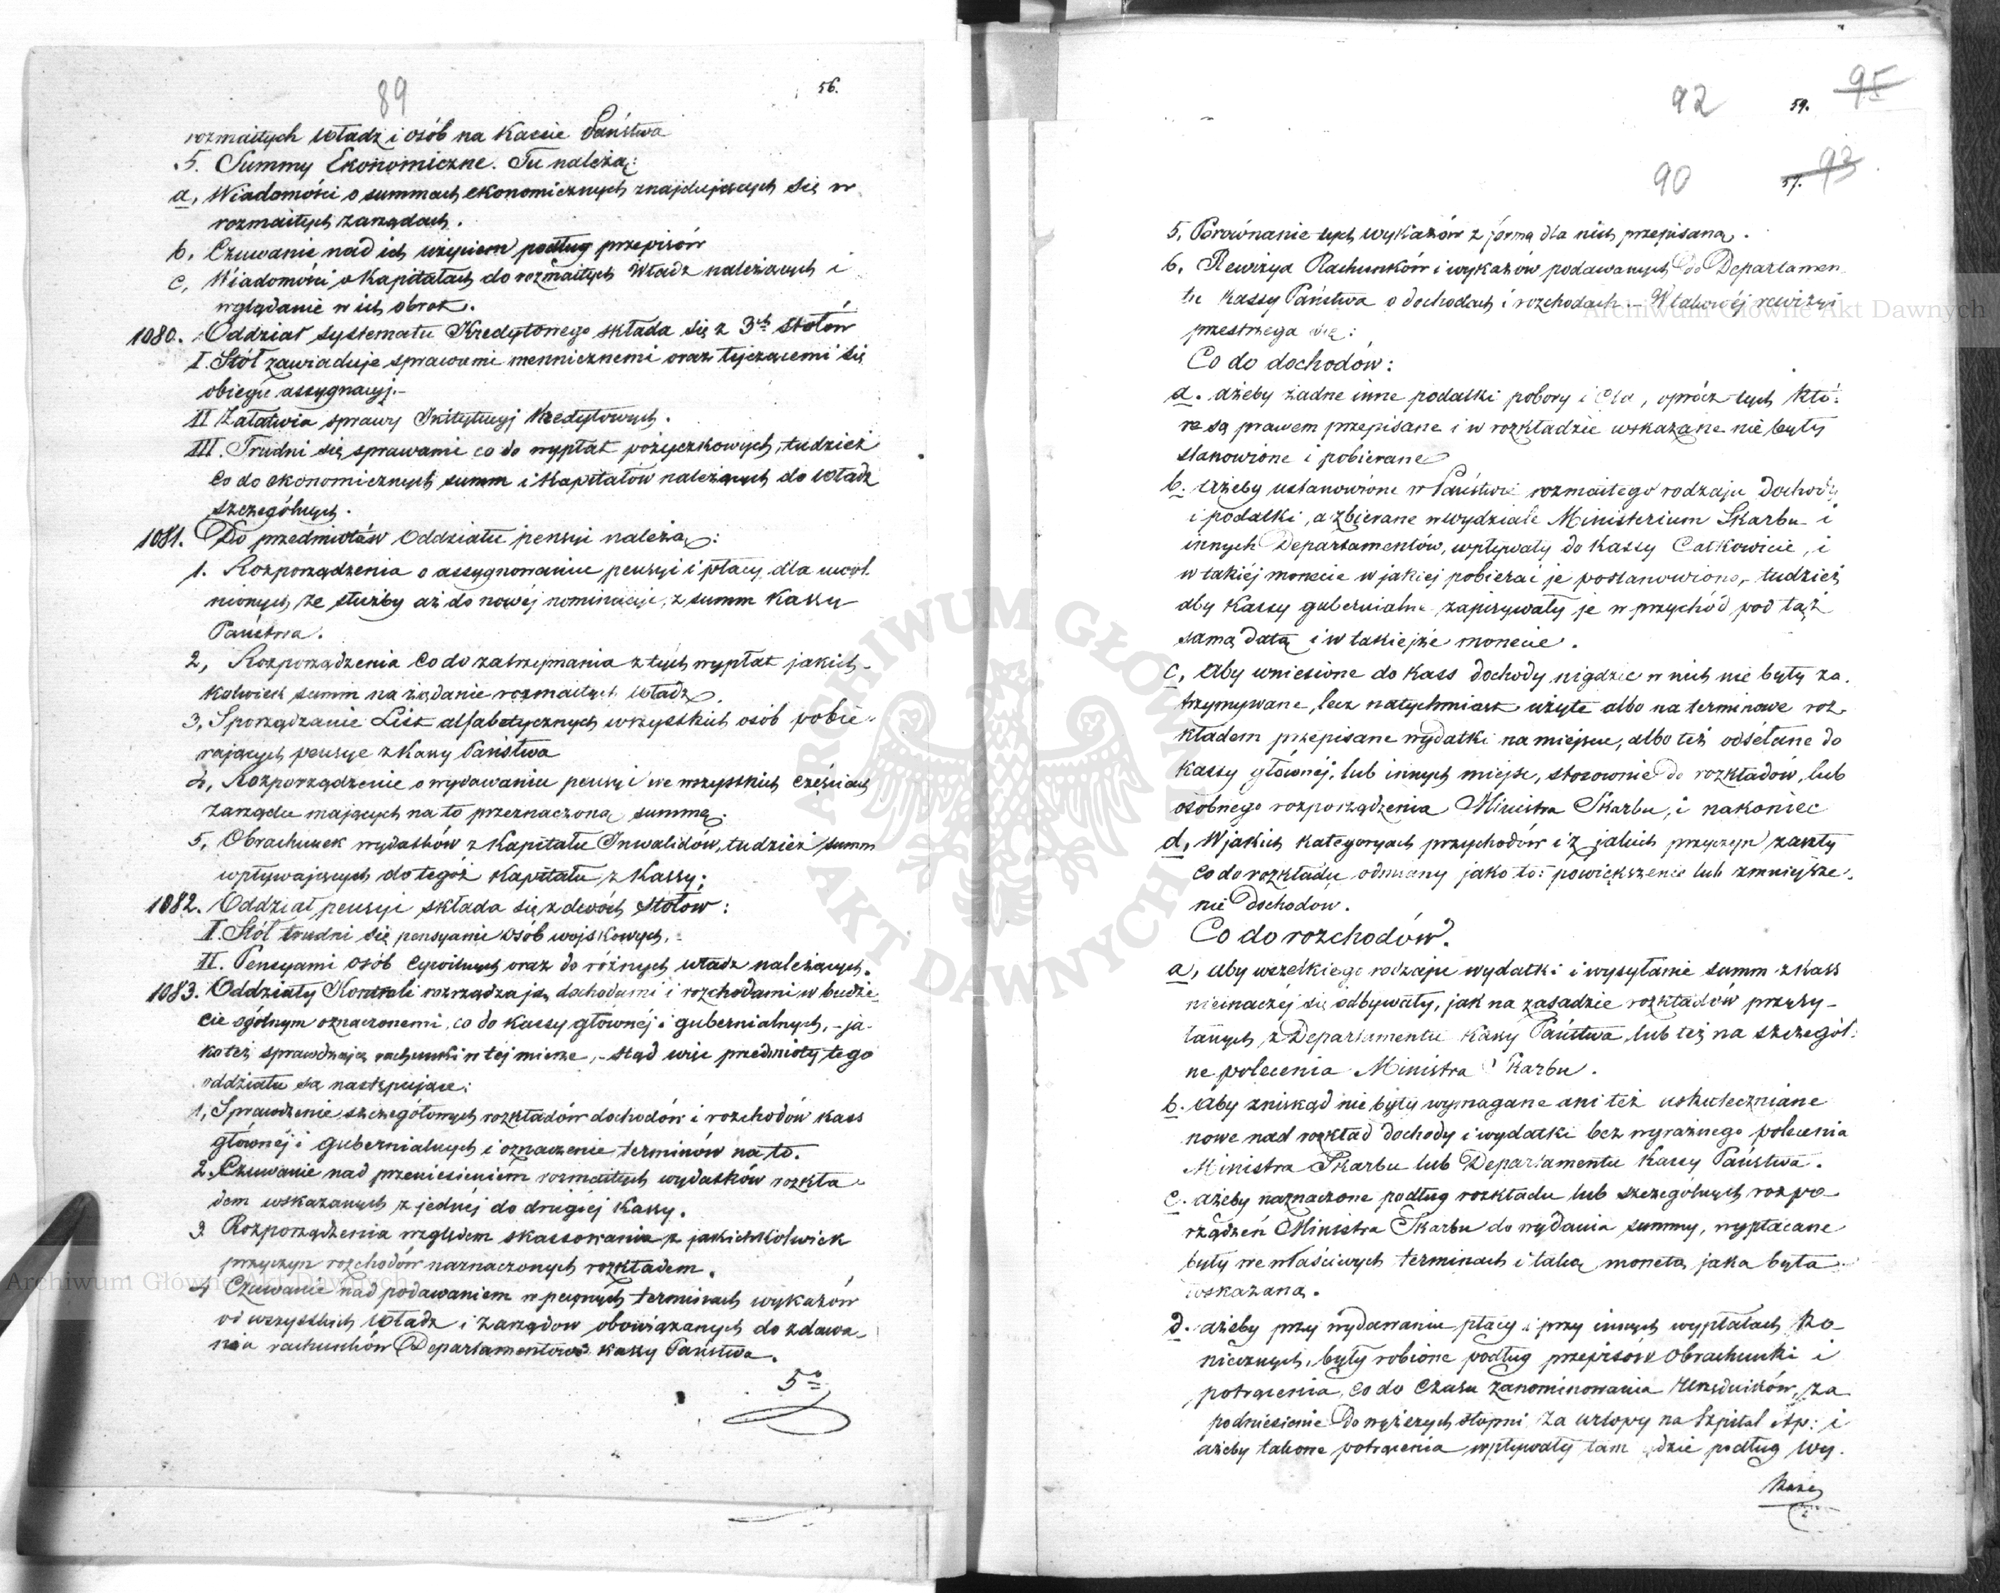 89
56.
rozmaitych Władz i osób na Kassie Państwa
5. Summy Ekonomiczne. Tu należą:
a, Wiadomości o summach ekonomicznych znajdujących się w
rozmaitych zarządach.
b, Czuwanie nad ich użyciem podług przepisów
c, Wiadomości o Kapitałach do rozmaitych Władz należących i
wglądanie w ich obrot.
1080. Oddział systematu Kredytowego składa się z 3ch stołów
I Stół zawiaduje sprawami mennicznemi oraz tyczącemi się
obiegu assygnacyj.
II Załatwia sprawy Instytucyj Kredytowych.
III. Trudni się sprawami co do wypłat pożyczkowych, tudzież
co do ekonomicznych summ i Kapitałów należących do Władz
szczególnych.
1081. Do przedmiotów Oddziału pensyi należą:
1. Rozporządzenia o assygnowaniu pensyi i płacy dla uwol
nionych ze służby aż do nowej nominacyi, z summ Kassy
Państwa.
2, Rozporządzenia co do zatrzymania z tych wypłat jakich-
kolwiek summ na żądanie rozmaitych Władz.
3, Sporządzanie List alfabetycznych wszystkich osób pobie-
rających pensye z Kassy Państwa
4, Rozporządzenie o wydawaniu pensyi we wszystkich częściach
zarządu mających na to przeznaczoną summę.
5, Obrachunek wydatków z Kapitału Inwalidów, tudzież summ
wpływających do tegoż Kapitału z Kassy;
1082. Oddział pensyi składa się z dwóch stołów:
I. Stół trudni się pensyami osób wojskowych,
II. Pensyami osób cywilnych oraz do różnych władz należących.
1083. Oddziały Kontroli rozrządzają dochodami i rozchodami w budże
cie ogólnym oznaczonemi, co do kassy głównej i gubernialnych, - ja-
ko też sprawdzają rachunki w tej mierze, - stąd więc przedmioty tego
oddziału są następujące:
1, Sprawdzenie szczegółowych rozkładów dochodów i rozchodów kass
głównej i gubernialnych i oznaczenie terminów na to.
2. Czuwanie nad przeniesieniem rozmaitych wydatków rozkła-
dem wskazanych z jednej do drugiej Kassy.
3 Rozporządzenia względem skassowania z jakichkolwiek
przyczyn rozchodów naznaczonych rozkładem.
4 Czuwanie nad podawaniem w pewnych terminach wykazów
od wszystkich Władz i Zarządow obowiązanych do zdawa-
nia rachunków Departamentowi kassy Państwa.
5o
92
59.
95
90
57.
93
5, Porównanie tych wykazów z formą dla nich przepisaną.
6, Rewizya Rachunków i wykazów podawanych do Departamen
tu Kassy Państwa o dochodach i rozchodach. - W takowéj rewizyi
przestrzega się:
Co do dochodów:
a. ażeby żadne inne podatki pobory i cła, oprócz tych któ-
re są prawem przepisane i w rozkładzie wskazane nie były
stanowione i pobierane
b. Ażeby ustanowione w Państwie rozmaitego rodzaju Dochody
i podatki, a zbierane w wydziale Ministerium Skarbu i
innych Departamentów, wpływały do Kassy Całkowicie, i
w takiéj monecie w jakiej pobierać je postanowiono, tudzież
aby Kassy gubernialne zapisywały je w przychód pod tąż
samą datą i w takiejże monecie.
c, Aby wniesione do kass dochody nigdzie w nich nie były za-
trzymywane, lecz natychmiast użyte albo na terminowe roz-
kładem przepisane wydatki na miejscu, albo też odsełane do
kassy głównéj, lub innych miejsc, stosownie do rozkładów, lub
osobnego rozporządzenia Ministra Skarbu, i nakoniec
d, W jakich kategoryach przychodów i z jakich przyczyn zaszły
co do rozkładu odmiany jako to: powiększenie lub zmniejsze-
nie Dochodow.
Co do rozchodów.
a, Aby wszelkiego rodzaju wydatki i wysyłanie summ z kass
nieinaczéj się odbywały, jak na zasadzie rozkładów przysy-
łanych z Departamentu Kassy Państwa, lub też na szczegól-
ne polecenia Ministra Skarbu.
b. Aby znikąd nie były wymagane ani też uskuteczniane
nowe nad rozkład dochody i wydatki bez wyraźnego polecenia
Ministra Skarbu lub Departamentu Kassy Państwa.
c. ażeby naznaczone podług rozkładu lub szczególnych rozpo-
rządzeń Ministra Skarbu do wydania summy, wypłacane
były we właściwych terminach i taką monetą jaka była
wskazaną.
d. ażeby przy wydawaniu płacy i przy innych wypłatach ko-
niecznych, były robione podług przepisów Obrachunki i
potrącenia, co do czasu zanominowania Urzędników, za
podniesienie do wyższych stopni za urlopy na Szpital itp: i
ażeby takowe potrącenia wpływały tam gdzie podług wy.
każe
Archiwum Główne Akt Dawnych
Archiwum Główne Akt Dawnych
ARCHIWUM GŁÓWNE
AKT DAWNYCH